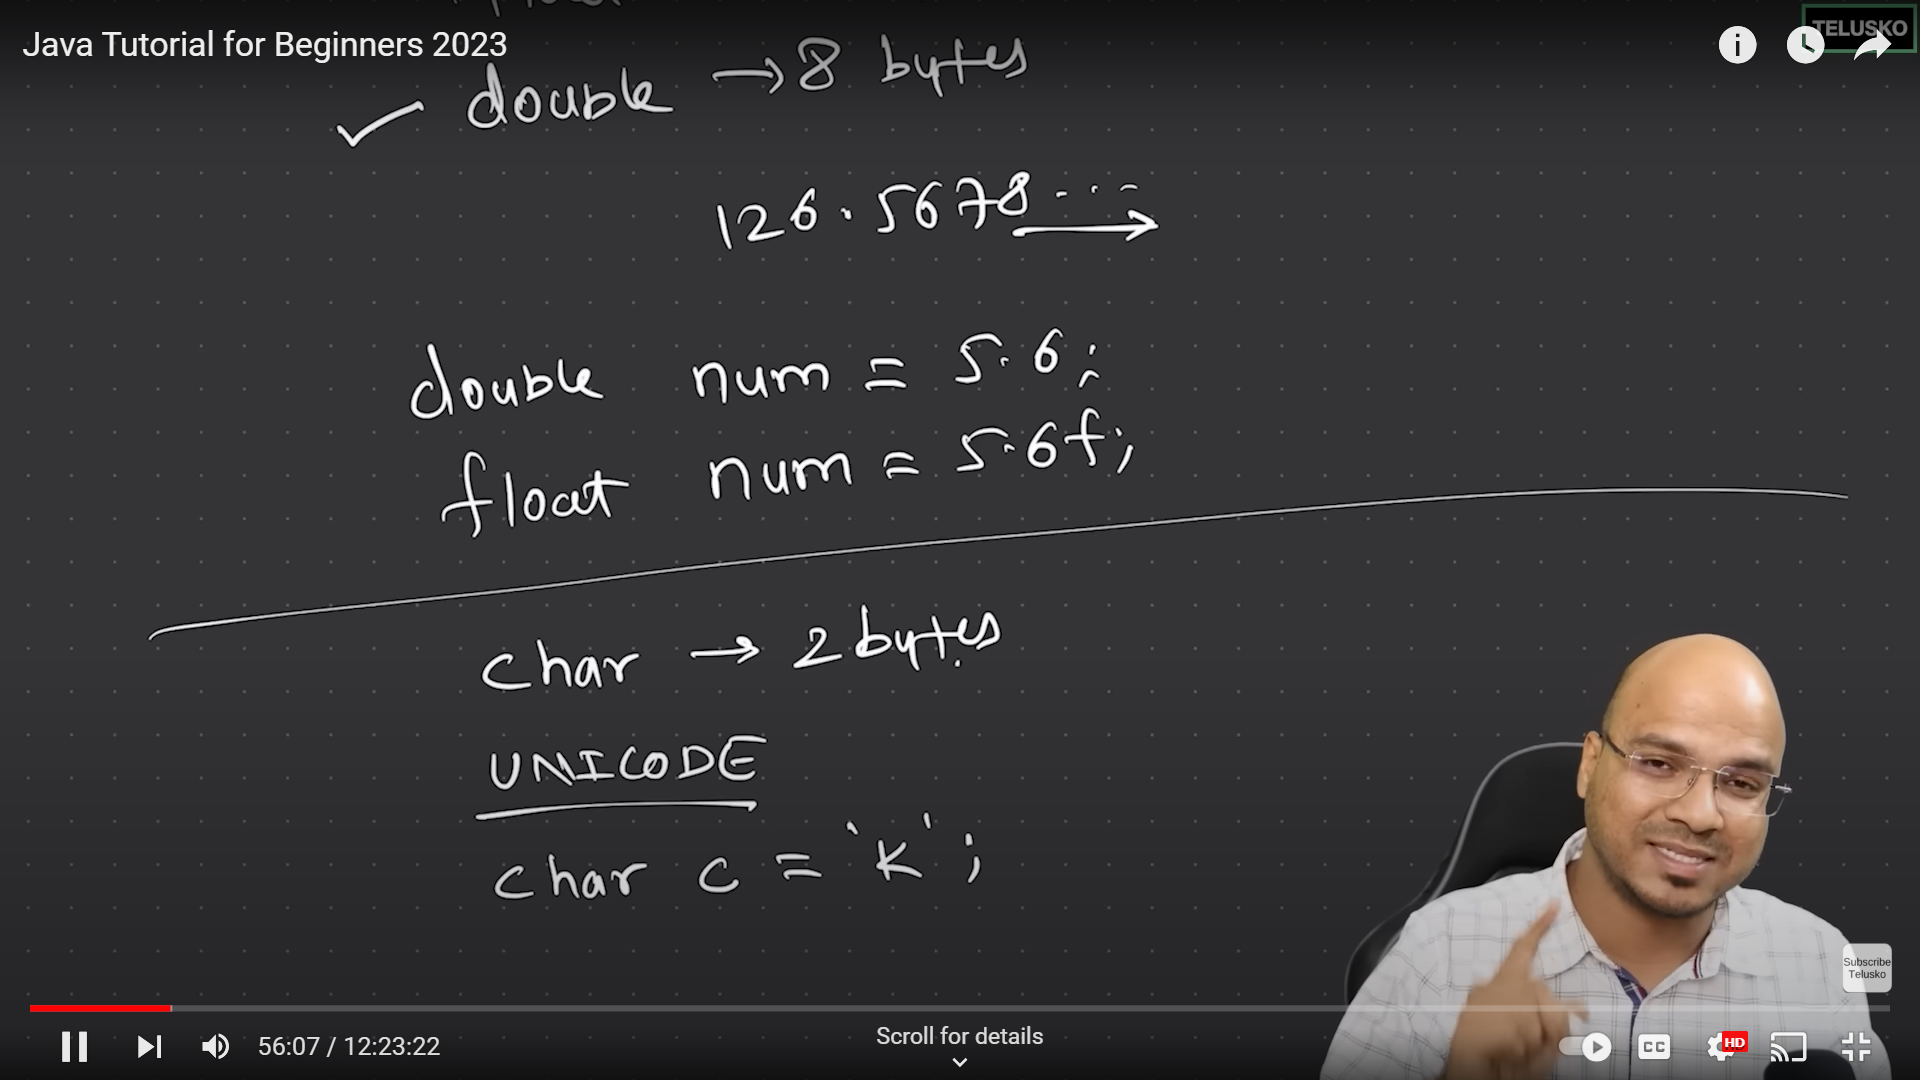 Java Tutorial for Beginners 2023
TELUSKO
double → 8 bytes
126.5678...
double num = 5.6;
float num = 5.6f;
char → 2 bytes
UNICODE
char c = 'k';
Subscribe
Telusko
56:07 / 12:23:22
Scroll for details
CC
HD